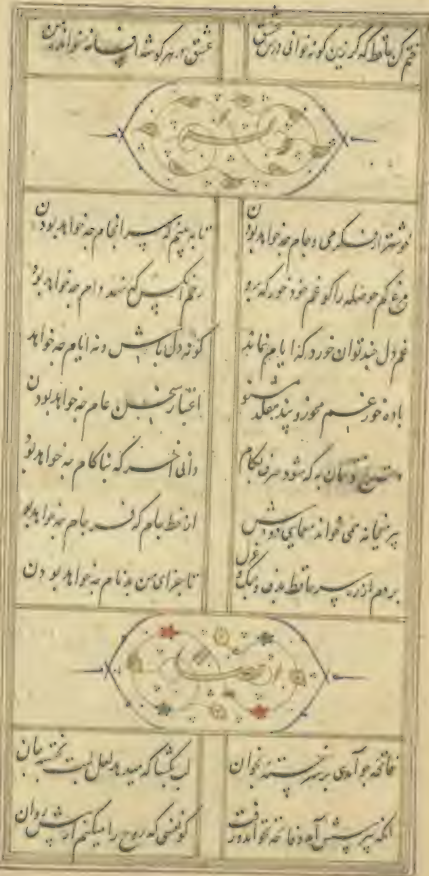 ختم کن حافظ که گر زین گونه خوانی درس عشق
عشق در هر گوشه افسانه خواند ز من
وله
خوشتر از فکر می و جام چه خواهد بودن
تا به بینم که سرانجام چه خواهد بودن
مرغ کم حوصله را کو غم خود خور که برو
رحم آنکس که نهد دام چه خواهد بود
غم دل چند توان خورد که ایام نماند
کو نه دل باش و نه ایام چه خواهد
باده خور غم مخور و پند مقلد مشنو
اعتبار سخن عام چه خواهد بودن
دست رنج تو همان به که شود صرف بکام
دانی آخر که بناکام چه خواهد بو
پیر میخانه همی خواند معمایی دوش
از خط جام که فرجام چه خواهد بو
بردم از ره سر حافظ بدف و چنگ و غزل
تا جزای من بدنام چه خواهد بودن
فاتحه چو آمدی بر سر خسته بخوان
لب بگشا که میدهد لعل لبت بخسته جان
آنکه بپرسش آمد و فاتحه خواند و رفت
کو نفسی که روح را میکنم از پیش روان